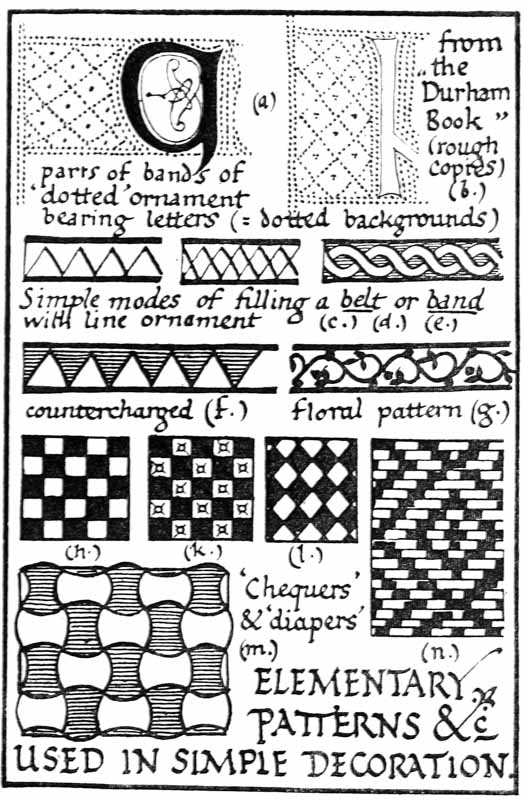 G
(a)
I
from
"the
Durham
Book"
(rough
copies)
(b.)
parts of bands of
'dotted' ornament
bearing letters (= dotted backgrounds)
Simple modes of filling a belt or band
with line ornament (c.) (d.) (e.)
countercharged (f.)
floral pattern (g.)
(h.)
(k.)
(l.)
'Chequers'
& 'diapers'
(m.)
(n.)
ELEMENTARY
PATTERNS &c
USED IN SIMPLE DECORATION.